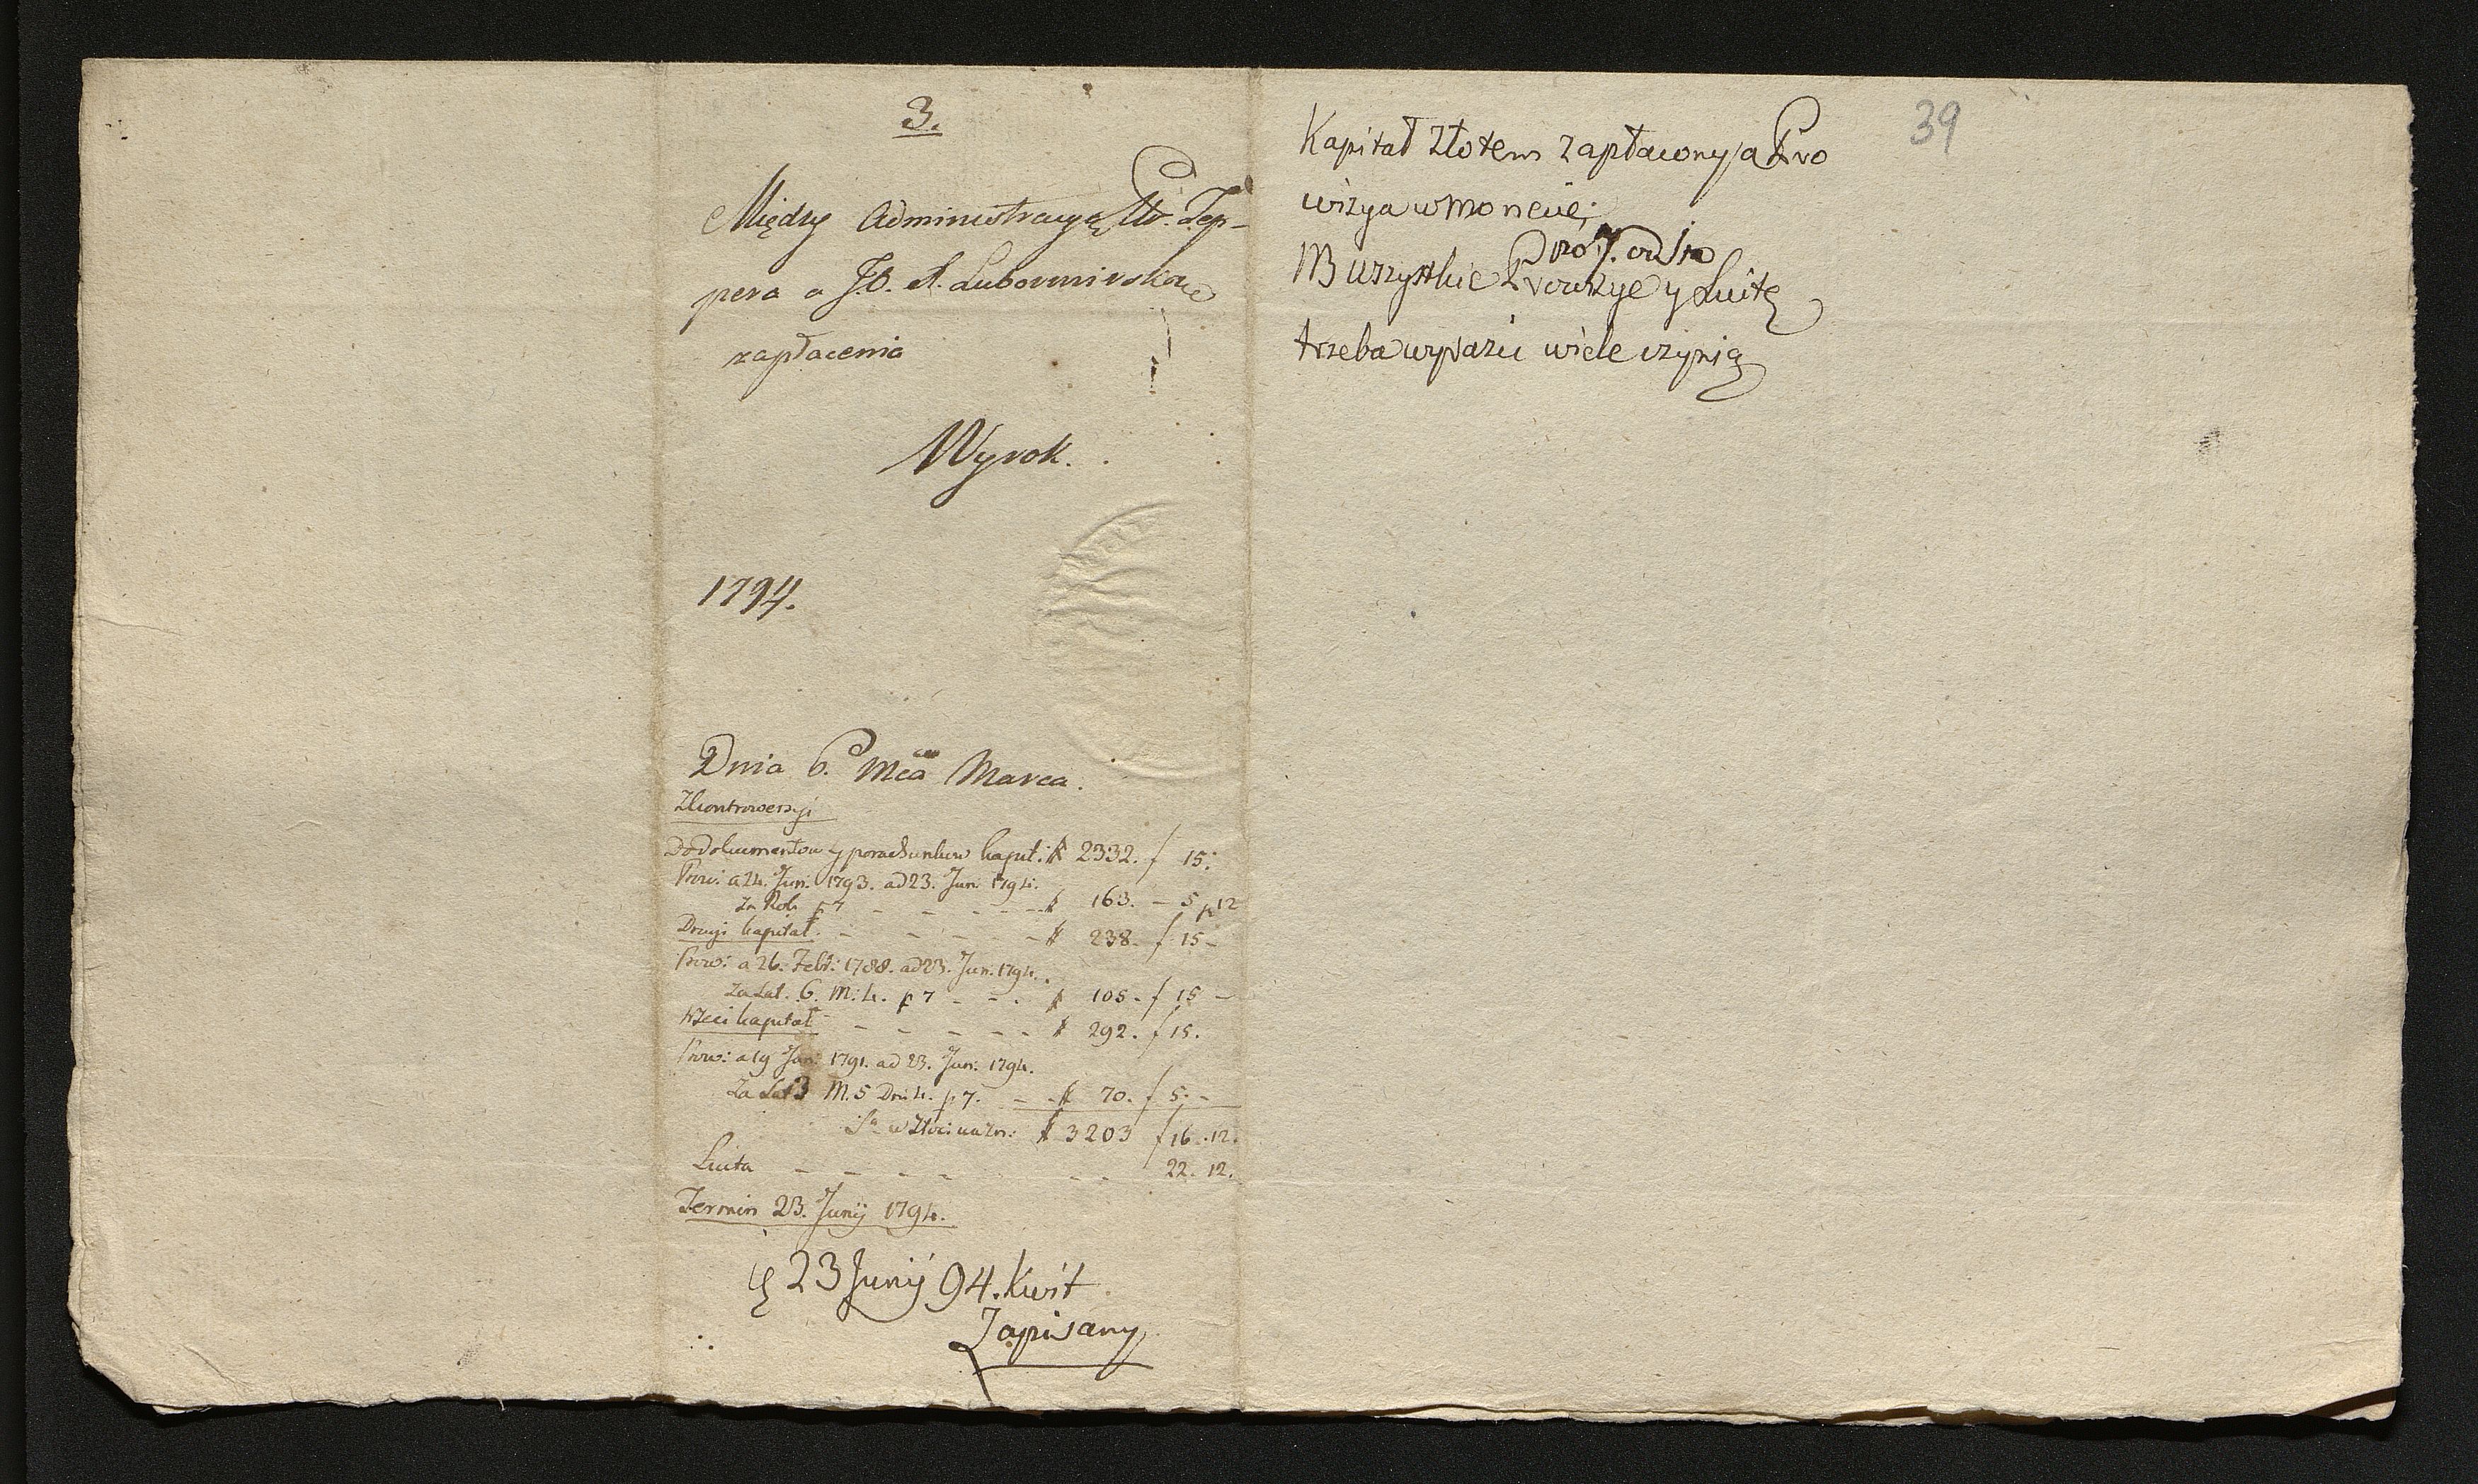 3.
Między Administracyą Ptr. Tep-
pera a J.O. A. Lubomirską
zapłacenia
Wyrok.
1794.
Dnia 6. Mca Marca.
Zkontrowersyi
Dodokumentow y porachunkow kapit: # 2332. f 15:
Prow: a 24. Jun: 1793. ad 23. Jun: 1794.
Za Rok p 7 - - - - - # 163. - 5 p 12
Drugi kapitał. - - - - - # 238. f 15 -
Prow: a 26. Febr: 1788. ad 23. Jun: 1794.
Za Lat. 6. M: 4. p 7 - - . # 105 - f 15 -
trzeci kapitał - - - - - # 292. f 15.
Prow: a 19 Jan: 1791. ad 23. Jun: 1794.
Za Lat 3 M. 5 Dni 4. p 7. - - # 70. f 5. -
Sa w Złocie # 3203 f 16 . 12.
Luita - - - - - - 22. 12.
Termin 23. Junij 1794.
23 Junij 94. Kwit
Zapisany
39
Kapitał złotem zapłacony a Pro
wizya w monecie;
Pro 7. od sta
NB wszystkie Prowizye y Luitę
trzeba wyrazic wiele czynią